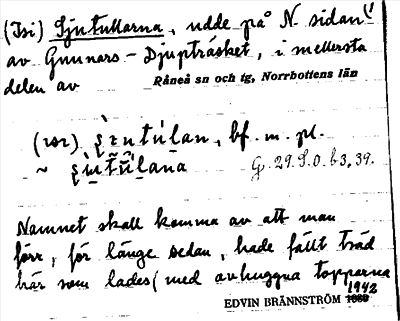 (Isi) Sjutullarna, udde på N. sidan
av Gunnars-Djupträsket, i mellersta
delen av Råneå sn och tg, Norrbottens län
bf. m. pl.
~
G. 29. S.O. b3, 39.
Namnet skall komma av att man
förr, för länge sedan, hade fällt träd
här som lades (med avhuggna topparna
EDVIN BRÄNNSTRÖM 1942